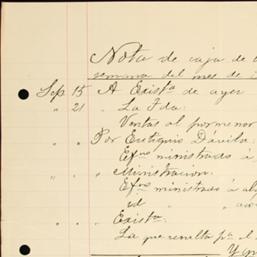 Nota de caja de
semana del mes de
Sep 15 A Exist.ª de ayer
" 21 " La Fda:
Ventas al pormenor
Por Eutiquio Dávila:
Ef.ᵒˢ ministrados á
" " " Ministracion:
Ef.ᵒˢ ministrados á al
id "
" " " Exist.ª:
La que resulta p.ª el